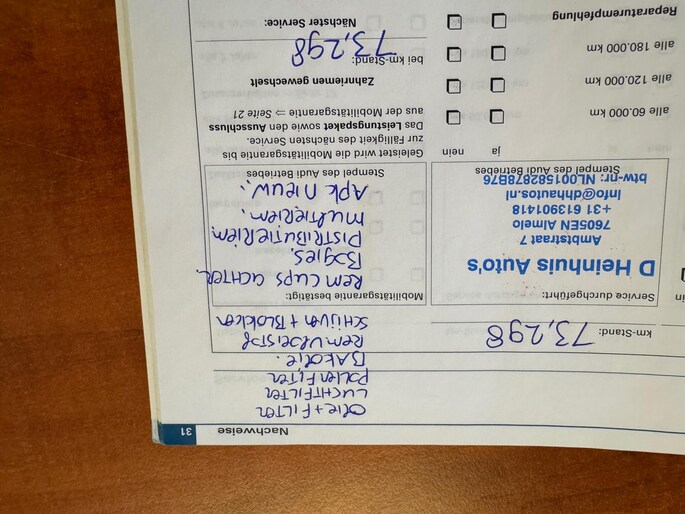 31
Nachweise
olie + FILTER
LUCHTFILTER
POLLENFILTER
REMVLOEISTOF
SCHIJVEN + BLOKKEN
km-Stand: 73,298
Service durchgeführt:
D Heinhuis Auto's
Ambtstraat 7
7605EN Almelo
+31 613901418
Info@dhhautos.nl
btw-nr: NL001582878B76
Stempel des Audi Betriebes
Mobilitätsgarantie bestätigt:
REM CUPS ACHTER.
BOGIES.
DISTRIBUTIERIEM
MULTIERIEM.
APK NIEUW.
Stempel des Audi Betriebes
Geleistet wird die Mobilitätsgarantie bis
zur Fälligkeit des nächsten Service.
Das Leistungspaket sowie den Ausschluss
aus der Mobilitätsgarantie ⇒ Seite 21
ja nein
alle 60.000 km
alle 120.000 km
alle 180.000 km
Reparaturempfehlung
Zahnriemen gewechselt
bei km-Stand: 73,298
Nächster Service: